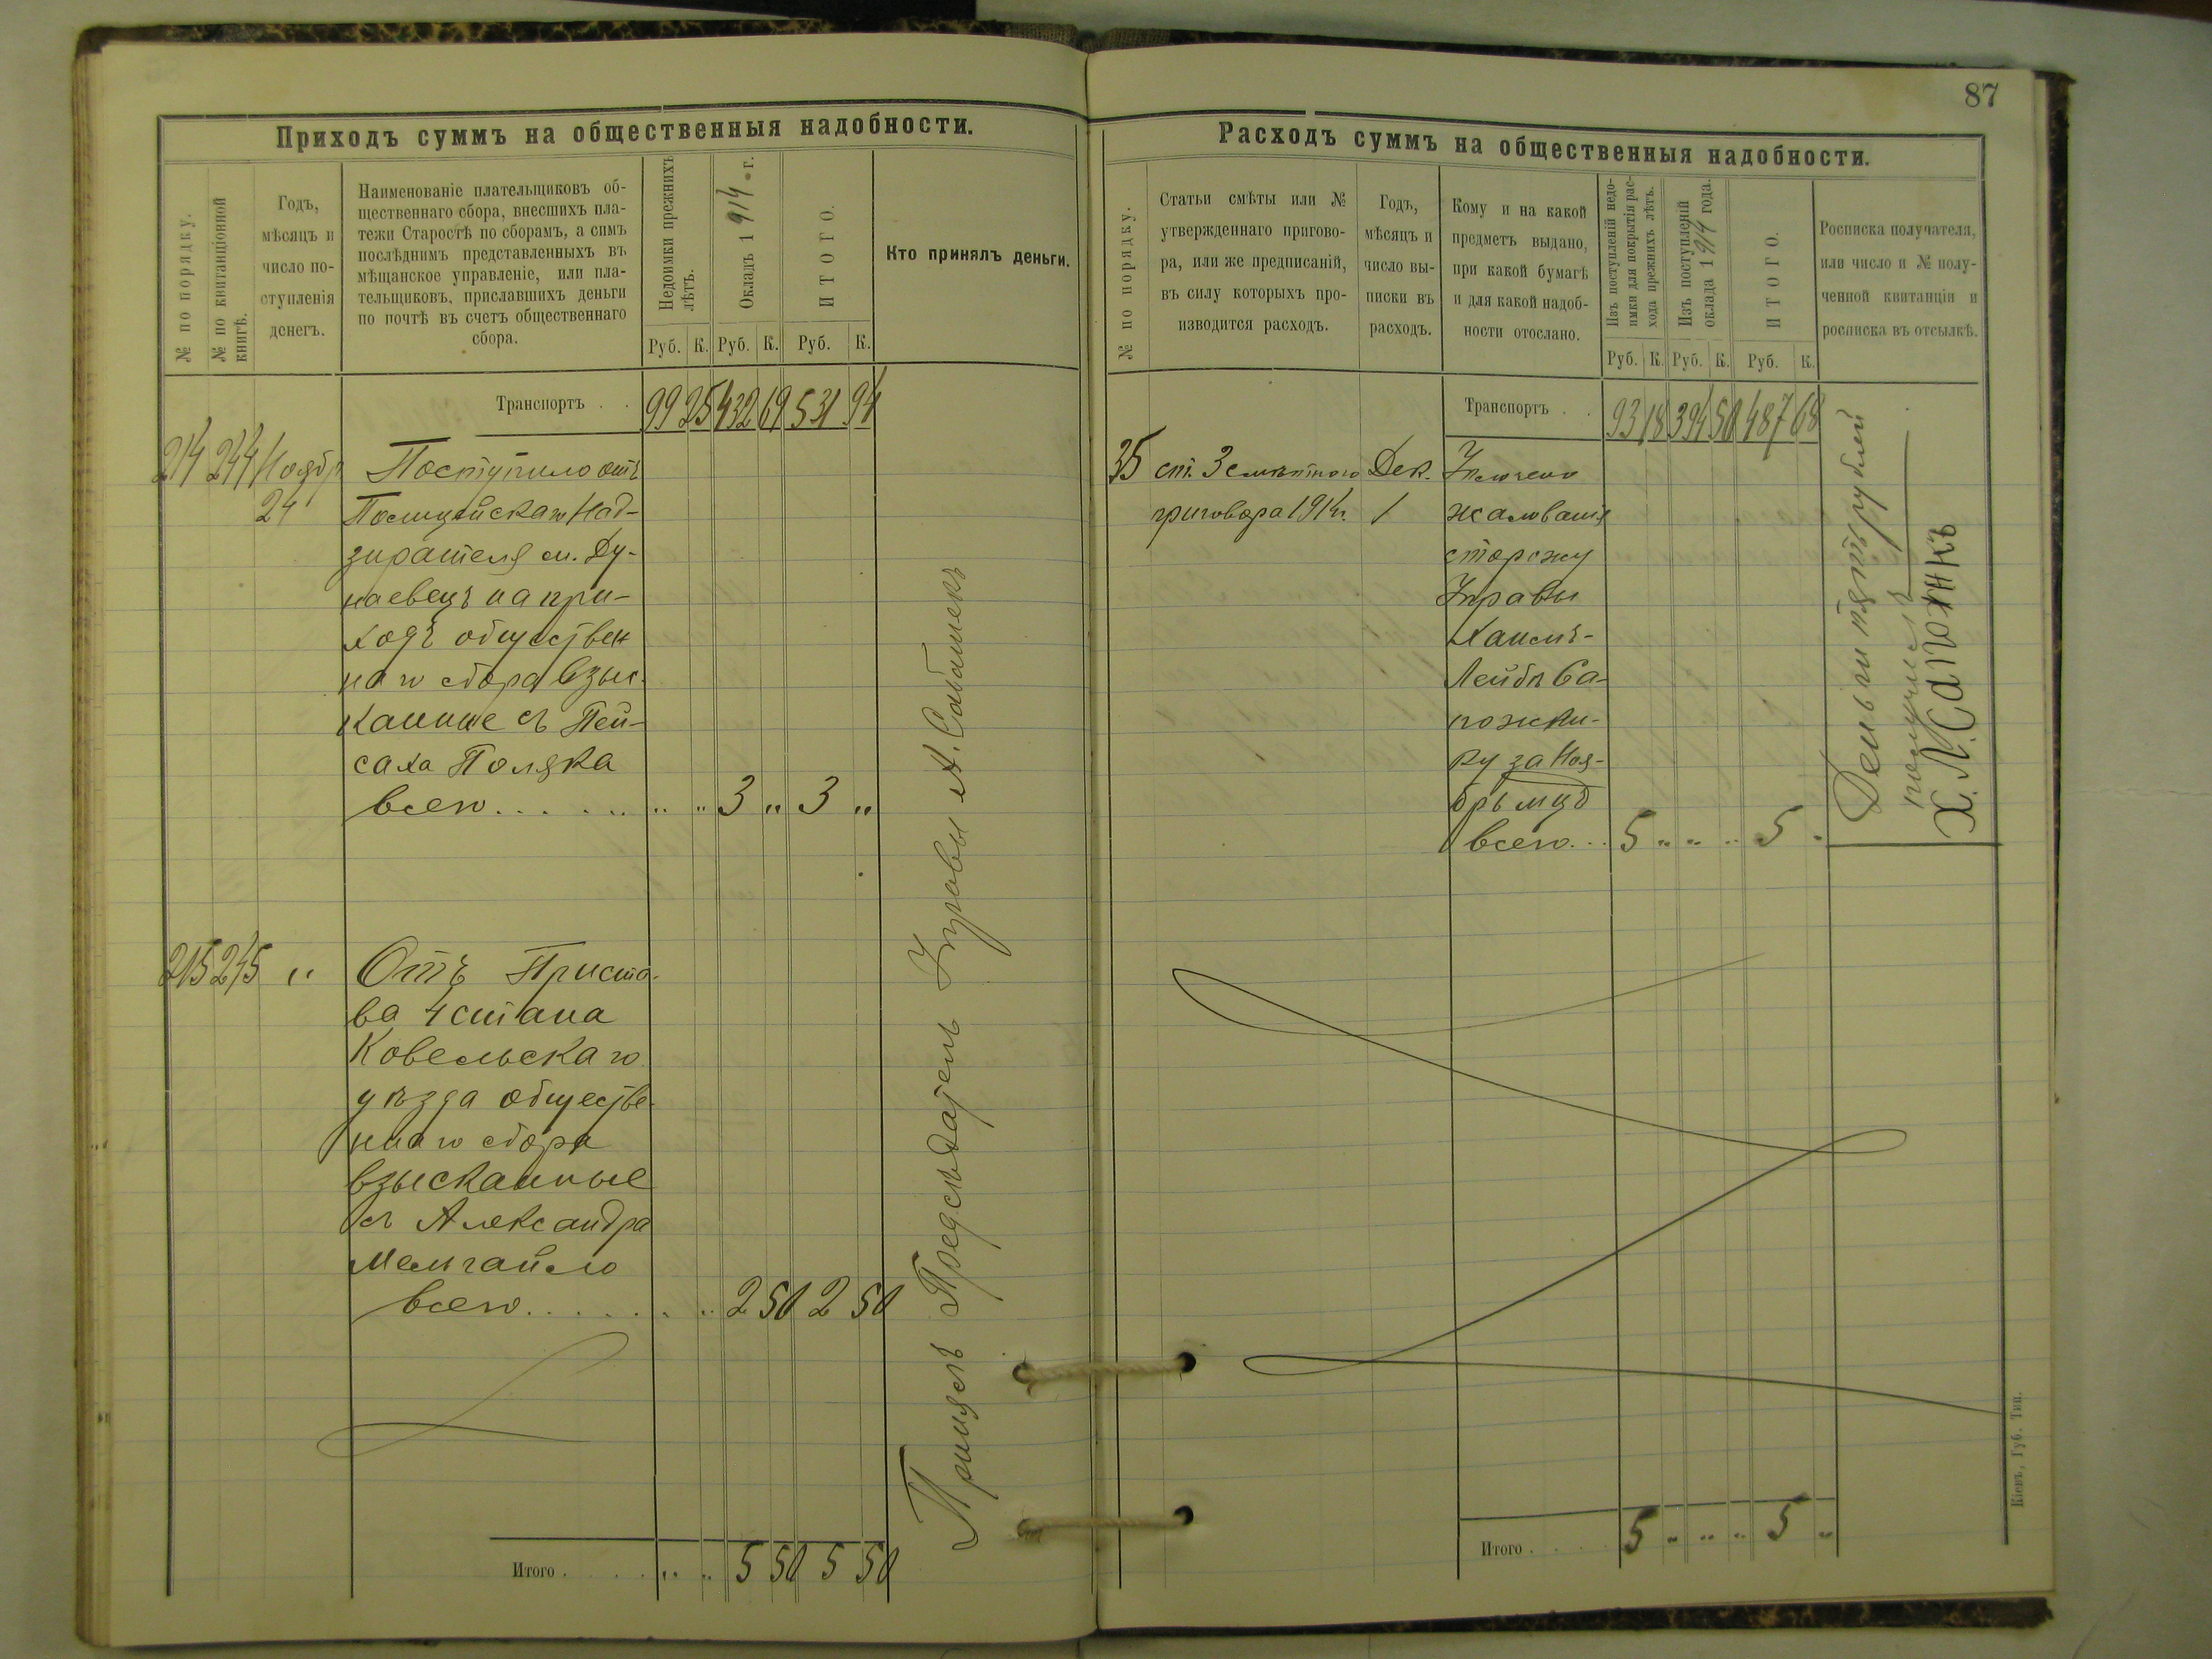 Приходъ суммъ на общественныя надобности.
№ по порядку.
№ по квитанціонной
книгѣ.
Годъ,
мѣсяцъ и
число по-
ступленія
денегъ.
Наименованіе плательщиковъ об-
щественнаго сбора, внесшихъ пла-
тежи Старостѣ по сборамъ, а симъ
послѣднимъ представленныхъ въ
мѣщанское управленіе, или пла-
тельщиковъ, приславшихъ деньги
по почтѣ въ счетъ общественнаго
сбора.
Недоимки прежнихъ
лѣтъ.
Окладъ 1914 г.
ИТОГО.
Кто принялъ деньги.
Руб. К. Руб. К. Руб. К.
Транспортъ . . 99 25 432 69 531 94
214 244 Ноябр. Поступило отъ
24 Полицейскаго Над-
зирателя м. Ду-
наевецъ на при-
ходъ обществен
наго сбора взыс-
канные съ Пей-
саха Поляка
всего . . . . . „ „ 3 „ 3 „
215 245 „ Отъ Приста-
ва 4 стана
Ковельскаго
уѣзда обществе-
ннаго сбора
взысканные
съ Александра
всего . . . . . . „ 2 50 2 50
Принялъ Предсѣдатель Управы А. Сабашекъ
Итого . . . . „ „ 5 50 5 50
87
Расходъ суммъ на общественныя надобности.
№ по порядку.
Статьи смѣты или №
утвержденнаго пригово-
ра, или же предписаній,
въ силу которыхъ про-
изводится расходъ.
Годъ,
мѣсяцъ и
число вы-
писки въ
расходъ.
Кому и на какой
предметъ выдано,
при какой бумагѣ
и для какой надоб-
ности отослано.
Изъ поступленій недо-
имки для покрытія рас-
хода прежнихъ лѣтъ.
Изъ поступленій
оклада 1914 года.
ИТОГО.
Росписка получателя,
или число и № полу-
ченной квитанціи и
росписка въ отсылкѣ.
Руб. К. Руб. К. Руб. К.
Транспортъ . . 93 18 394 50 487 68
35 ст. 3 смѣтнаго Дек. Уплочено
приговора 1914г. 1 жалованія
сторожу
Управы
Хаимъ-
Лейбѣ Са-
пожни-
ку за Ноя-
брь мцъ
всего . . 5 „ „ „ 5 „
Деньги пять рублей
получилъ
Х. Л. Сапожнкъ
Итого . . . . 5 „ „ „ 5 „
Кіевъ, Губ. Тип.